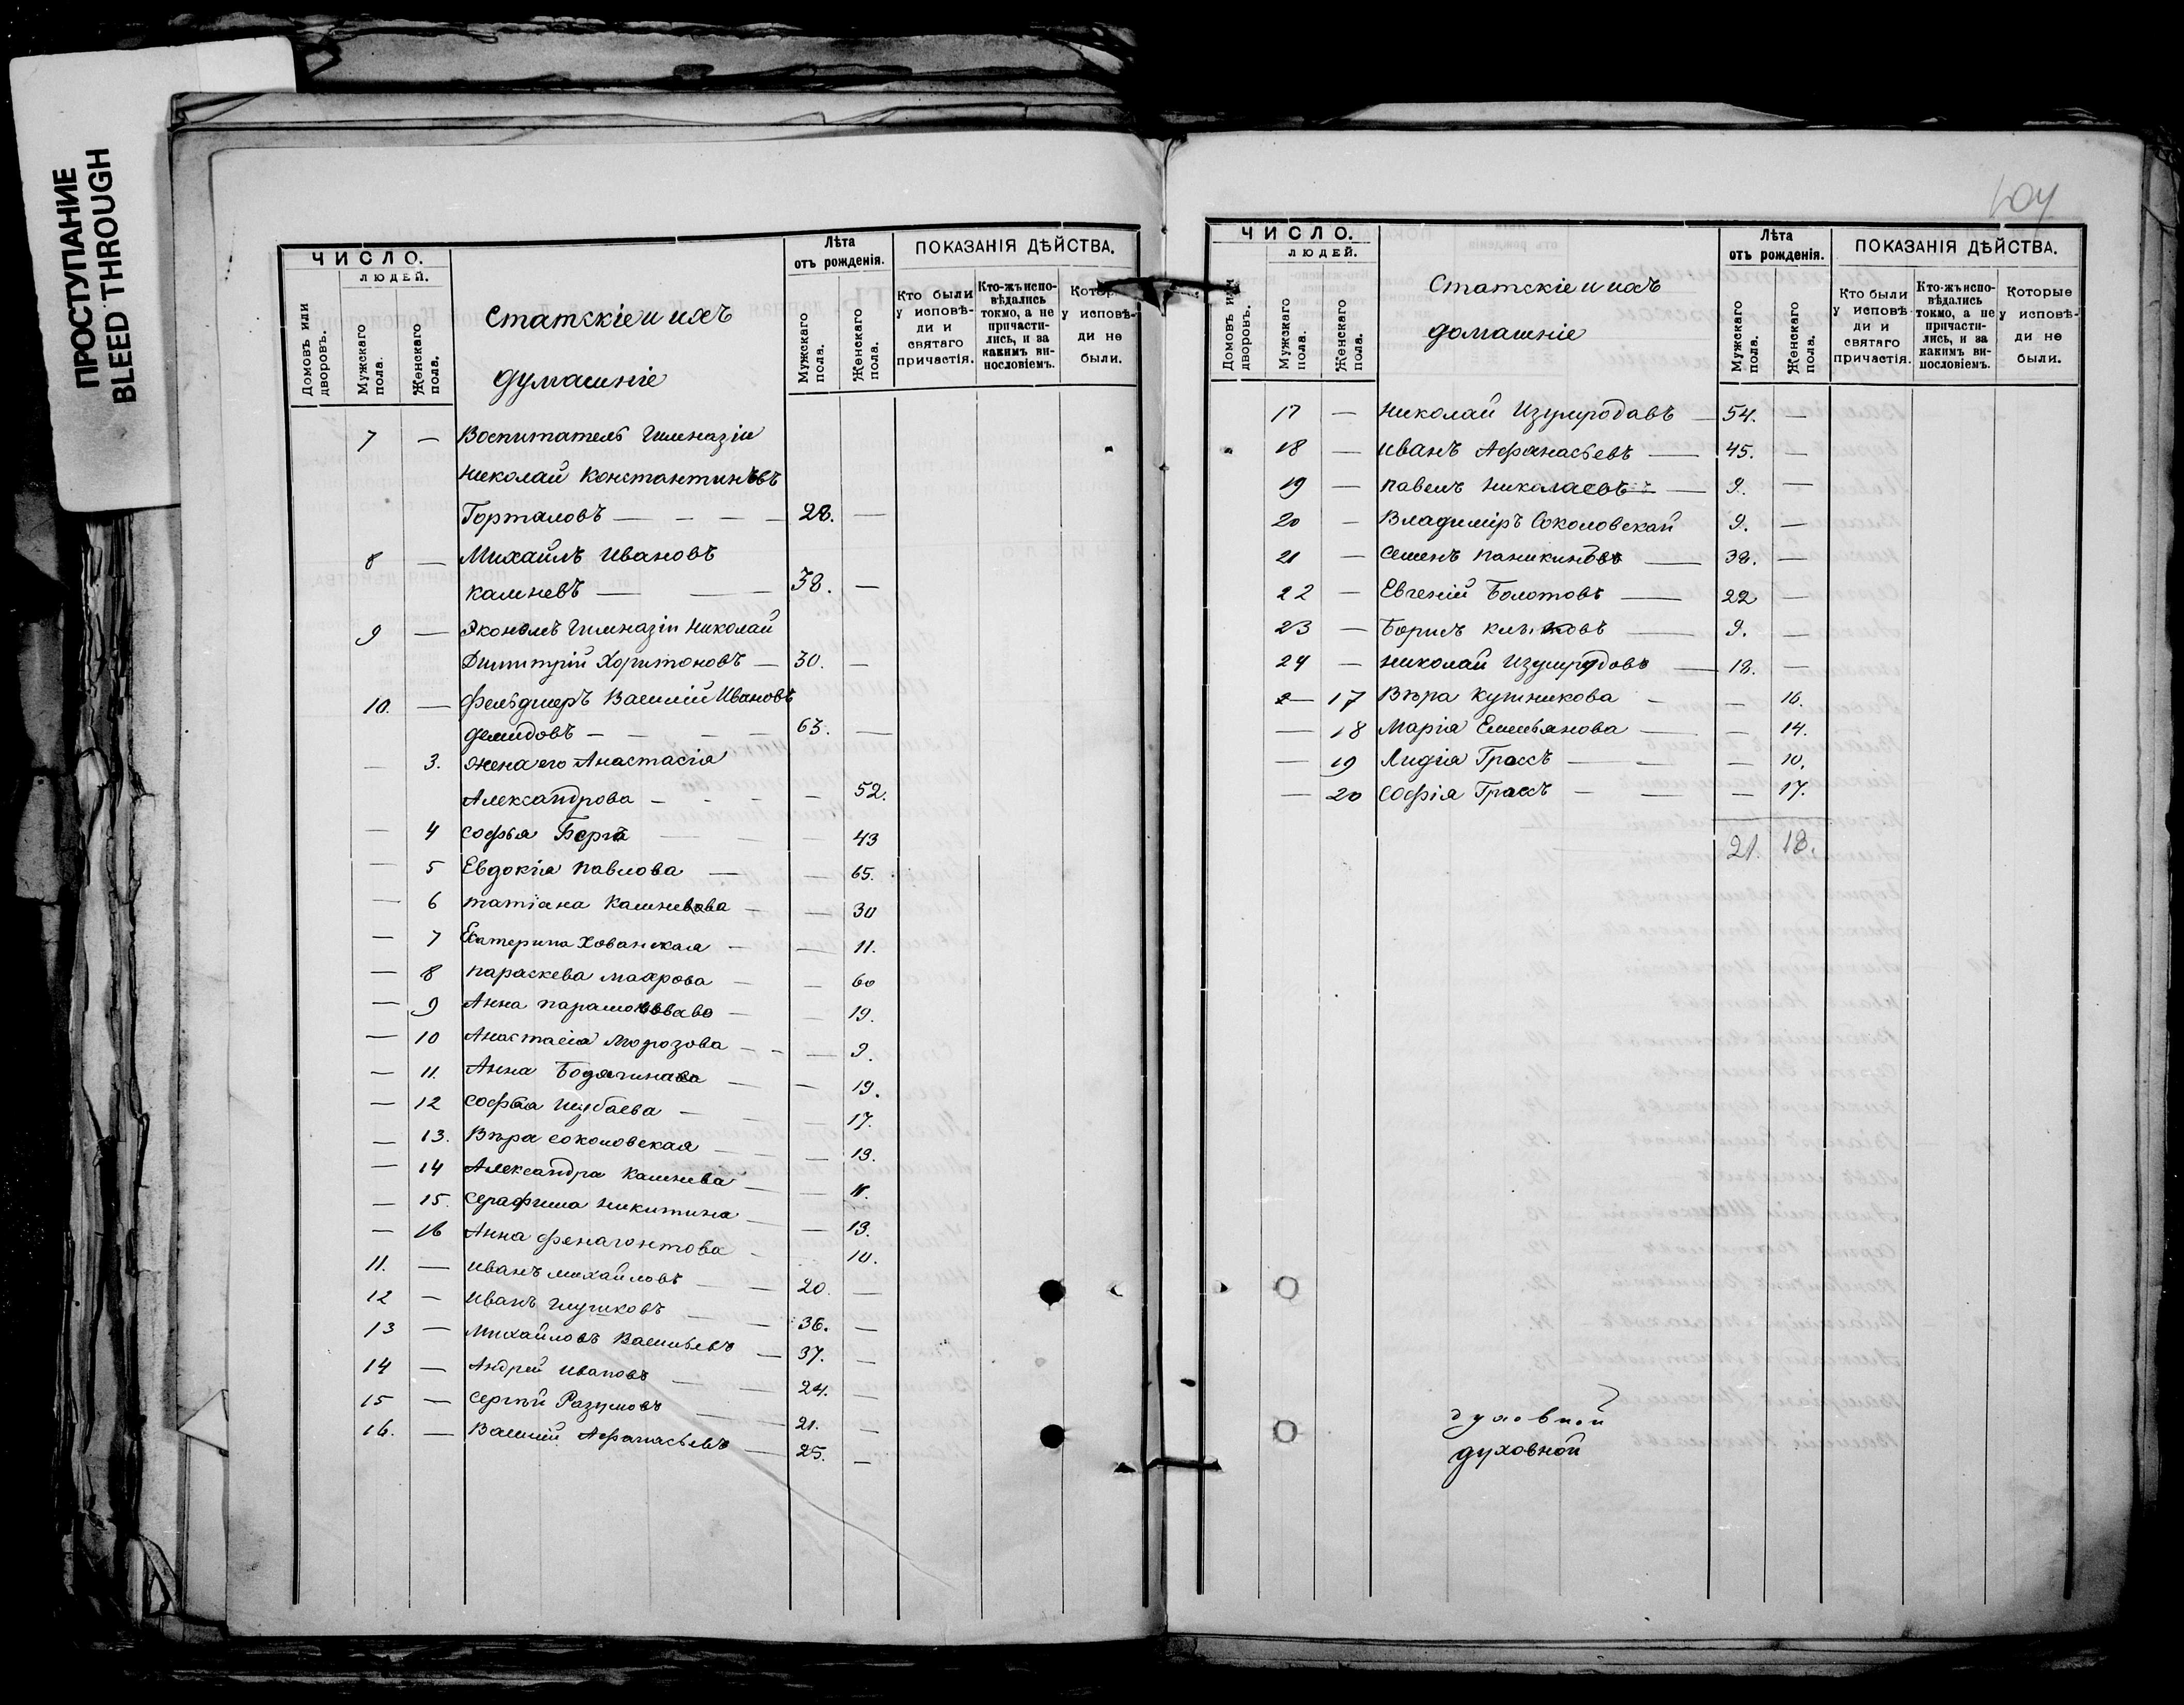 ПРОСТУПАНИЕ
BLEED THROUGH
ЧИСЛО.
ЛЮДЕЙ.
Домовъ или дворовъ.
Мужскаго пола.
Женскаго пола.
Статскіе и ихъ
думашніе
Лѣта
отъ рожденія.
Мужскаго пола.
Женскаго пола.
ПОКАЗАНІЯ ДѢЙСТВА.
Кто были у исповѣ-ди и святаго причастія.
Кто-жъ испо-вѣдались токмо, а не причасти-лись, и за какимъ ви-нословіемъ.
у исповѣ-ди не были.
7 — Воспитатель Гимназіи
Николай Константиновъ
Горталовъ — 28. —
8 — Михаилъ Ивановъ
Камневъ — 38. —
9 — Экономъ Гимназіи Николай
Димитрій Харитоновъ — 30. —
10. — Фельдшеръ Василій Ивановъ
Демидовъ — 63. —
— 3. Жена его Анастасія
Александрова — — 52.
— 4 Софья Берга — 43
— 5 Евдокія Павлова — — 65.
— 6 Татіана — — 30
— 7 Екатерина Хованская — — 11.
— 8 Параскева — — 60
— 9 Анна — — 19.
— 10 Анастасія Морозова — — 9.
— 11. Анна — — 19.
— 12 Софья — — 17.
— 13. Вѣра Соколовская — — 13.
— 14 Александра Камнева — — 11.
— 15. Серафима Никитина — — 13.
— 16 Анна — 10.
11. — Иванъ Михайловъ — 20. —
12 — Иванъ — 36. —
13 — Михайловъ Васильевъ — 37. —
14 — Андрей Ивановъ — 24. —
15 — Сергѣй Разумовъ — 21. —
16. — Василій Афанасьевъ — 25. —
ЧИСЛО.
ЛЮДЕЙ.
Домовъ или дворовъ.
Мужскаго пола.
Женскаго пола.
Статскіе и ихъ
домашніе
Лѣта
отъ рожденія.
Мужскаго пола.
Женскаго пола.
ПОКАЗАНІЯ ДѢЙСТВА.
Кто были у исповѣ-ди и святаго причастія.
Кто-жъ испо-вѣдались токмо, а не причасти-лись, и за какимъ ви-нословіемъ.
Которые у исповѣ-ди не были.
17 — Николай Изумродавъ — 54. —
18 — Иванъ Афанасьевъ — 45. —
19 — Павелъ Николаевъ — 9. —
20 — Владиміръ Соколовскай 9. —
21 — Семенъ — 38. —
22 — Евгеній Болотовъ — 22 —
23 — Борисъ — 9. —
24 — Николай Изумрудовъ — 18. —
— 17 Вѣра Кутникова — — 16.
— 18 Марія Емельянова — — 14.
— 19 Лидія Грассъ — — 10.
— 20 Софія Грассъ — — 17.
21. 18.
духовной